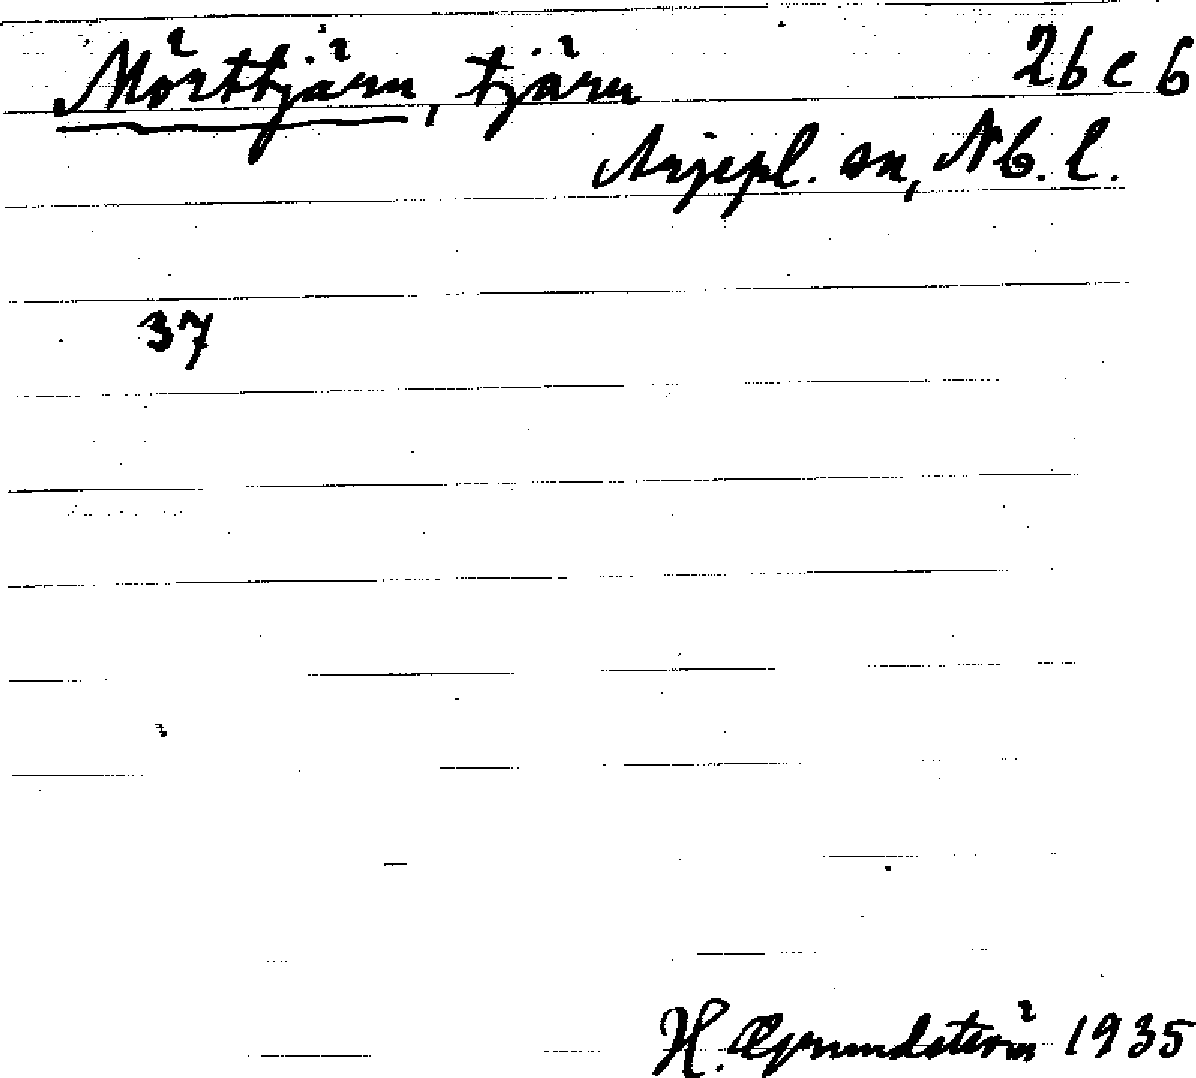 Mörttjärn, tjärn 26 c 6
Arjepl. sn, Nb. l.
37
H. Grundström 1935